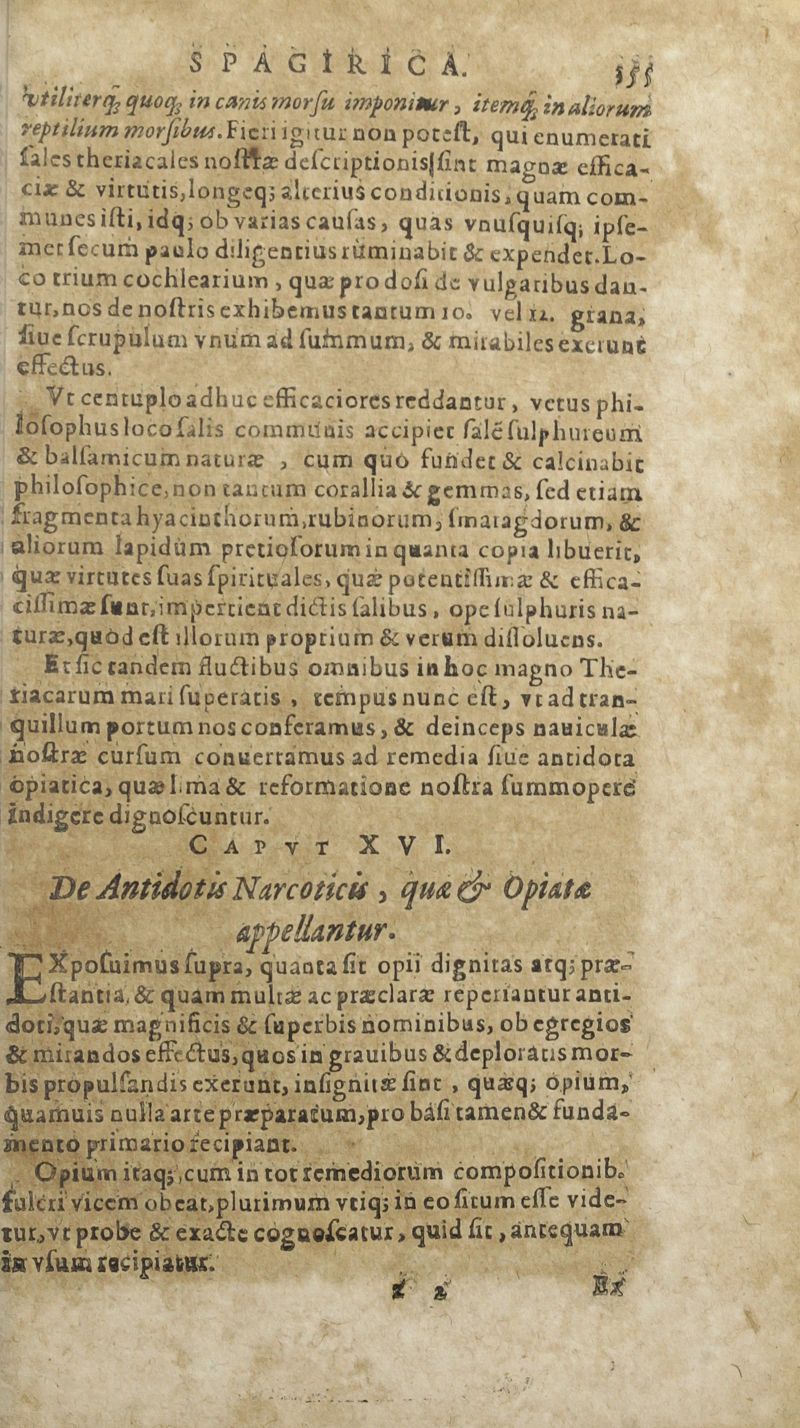 SPAGIRICA.
vtiliterq́; quoq́; in canis morſu imponitur, itemq́; in aliorum
reptilium morſibus. Fieri igitur non poteſt, qui enumerati
ſales theriacales noſtræ deſcriptionis ſint magnæ effica-
ciæ & virtutis, longeq; alterius conditionis, quam com-
munes iſti, idq; ob varias cauſas, quas vnuſquiſq; ipſe-
met ſecum paulo diligentius ruminabit & expendet. Lo-
co trium cochlearium, quæ pro doſi de vulgaribus dan-
tur, nos de noſtris exhibemus tantum 10. vel 12. grana,
ſiue ſcrupulum vnum ad ſummum, & mirabiles exerunt
effectus.
Vt centuplo adhuc efficaciores reddantur, vetus phi-
loſophus loco ſalis communis accipiet ſalē ſulphureum
& balſamicum naturæ, cum quo fundet & calcinabit
philoſophice, non tantum corallia & gemmas, ſed etiam
fragmenta hyacinthorum, rubinorum, ſmaragdorum, &
aliorum lapidum pretioſorum in quanta copia libuerit,
quæ virtutes ſuas ſpirituales, quæ potentiſſimæ & effica-
ciſſimæ ſunt, impertient dictis ſalibus, ope ſulphuris na-
turæ, quod eſt illorum proprium & verum diſſoluens.
Et ſic tandem fluctibus omnibus in hoc magno The-
riacarum mari ſuperatis, tempus nunc eſt, vt ad tran-
quillum portum nos conferamus, & deinceps nauiculæ
noſtræ curſum conuertamus ad remedia ſiue antidota
opiatica, quæ lima & reformatione noſtra ſummopere
indigere dignoſcuntur.
CAPVT XVI.
De Antidotis Narcoticis, quæ & Opiatæ
appellantur.
EXpoſuimus ſupra, quanta ſit opii dignitas atq; præ-
ſtantia, & quam multæ ac præclaræ reperiantur anti-
doti, quæ magnificis & ſuperbis nominibus, ob egregios
& mirandos effectus, quos in grauibus & deploratis mor-
bis propulſandis exerunt, inſignitæ ſint, quæq; opium,
quamuis nulla arte præparatum, pro baſi tamen & funda-
mento primario recipiant.
Opium itaq;, cum in tot remediorum compoſitionib.
fulcri vicem obeat, plurimum vtiq; in eo ſitum eſſe vide-
tur, vt probe & exacte cognoſcatur, quid ſit, antequam
in vſum recipiatur.